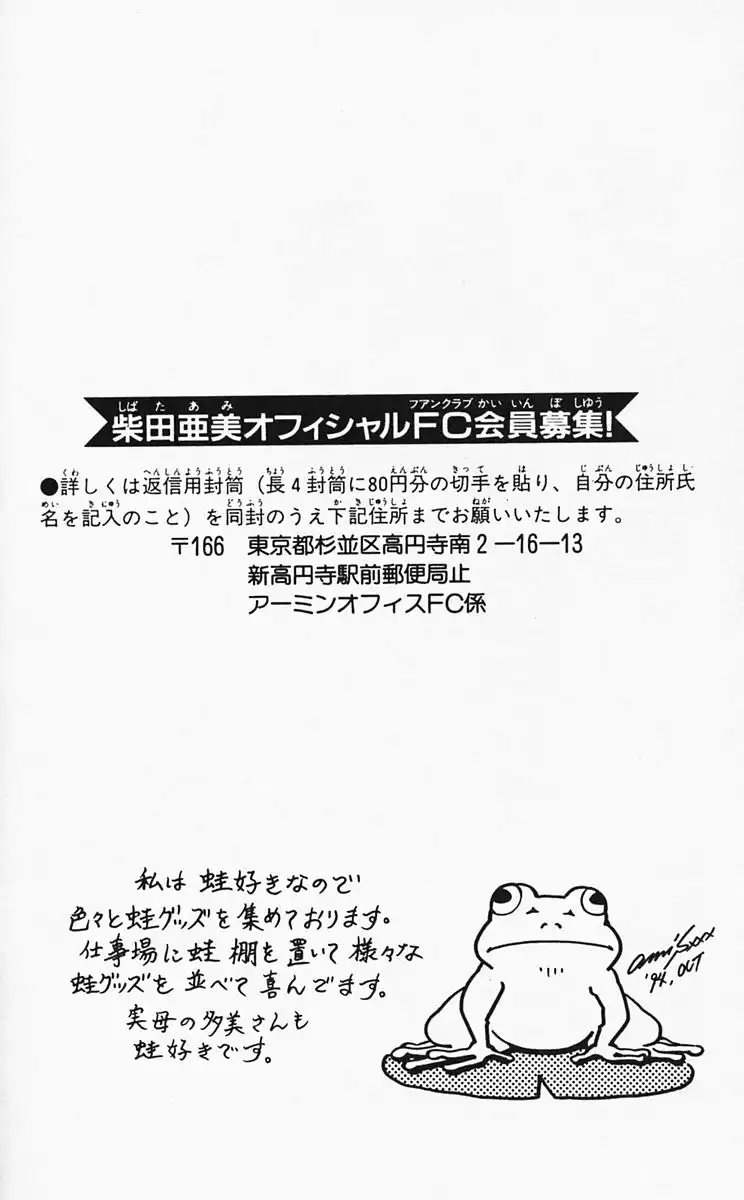 柴田亜美オフィシャルFC会員募集!
●詳しくは返信用封筒(長4封筒に80円分の切手を貼り、自分の住所氏
名を記入のこと)を同封のうえ下記住所までお願いいたします。
〒166 東京都杉並区高円寺南2-16-13
新高円寺駅前郵便局止
アーミンオフィスFC係
私は 蛙好きなので
色々と蛙グッズを集めております。
仕事場に蛙棚を置いて様々な
蛙グッズを並べて喜んでます。
実母の多美さんも
蛙好きです。
ami'Sxxx
'94, OUT